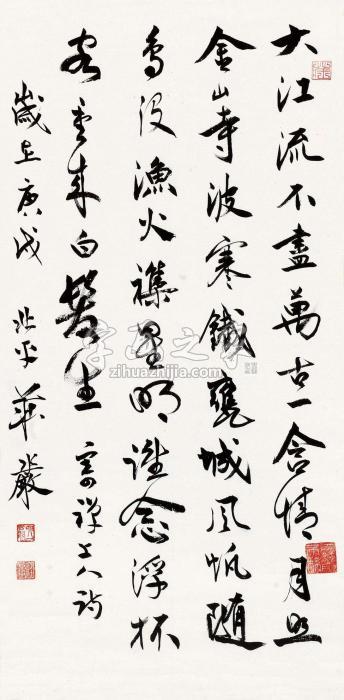 大江流不盡萬古一含情月照
金山寺波寒鐵甕城風帆隨
鳥没漁火襍星明誰念浮杯
客重來白髮生 寄禪上人詩
歲在庚戌 北平莊嚴
字画之家
zihuazhijia.com